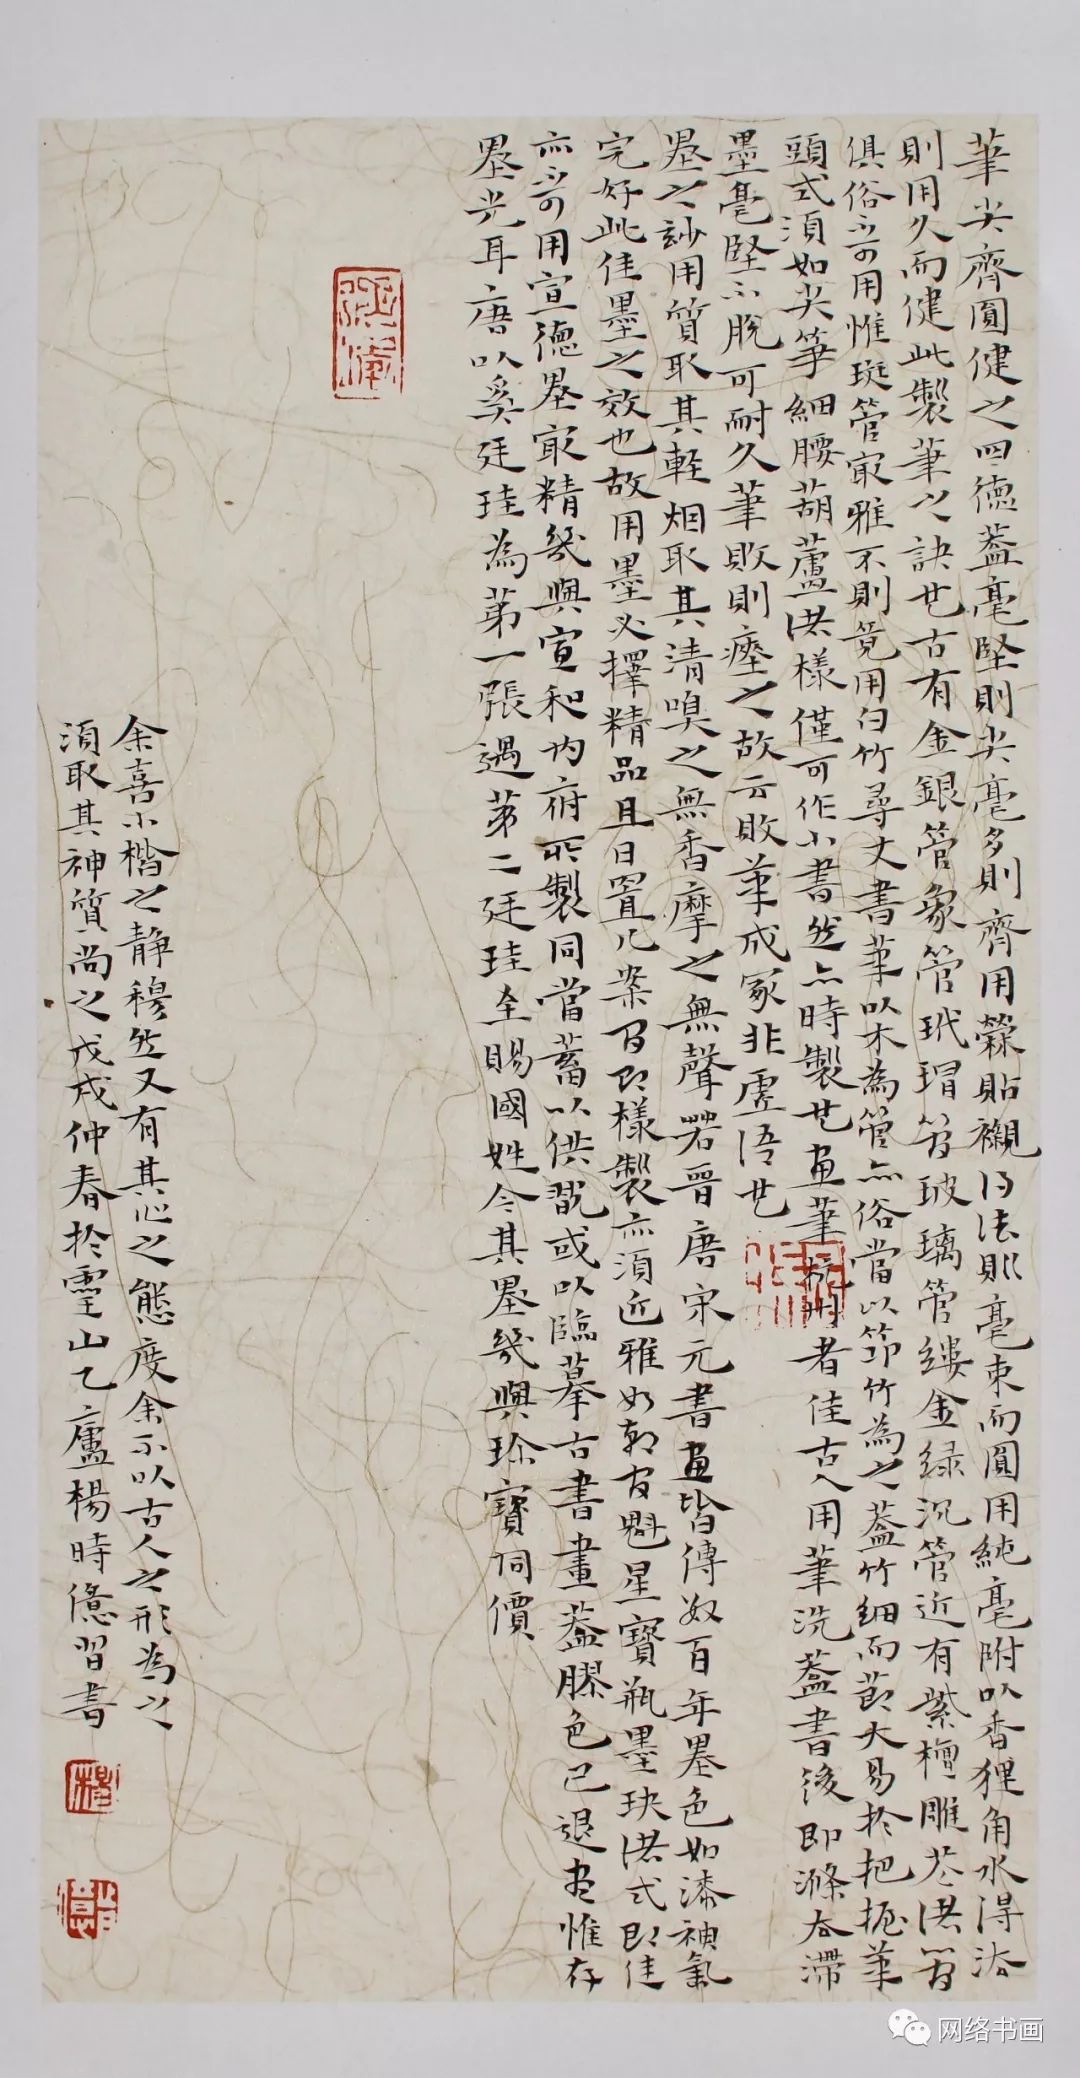 筆尖齊圓健之四德蓋毫堅則尖毫多則齊用檾貼襯得法則毫束而圓用純毫附以香狸角水得法
則用久而健此製筆之訣也古有金銀管象管玳瑁管玻璃管縷金綠沉管近有紫檀雕花諸管
俱俗可用惟斑管最雅不則竟用白竹尋丈書筆以木為管亦俗當以筇竹為之蓋竹細而節大易於把握筆
頭式須如尖筍細腰葫蘆諸樣僅可作小書然亦時製也畫筆杭州者佳古人用筆洗蓋書後即滌去滯
墨毫堅不脫可耐久筆敗則瘞之故云敗筆成冢非虛語也
墨之妙用質取其輕烟取其清嗅之無香摩之無聲若晉唐宋元書畫皆傳數百年墨色如漆神氣
完好此佳墨之效也故用墨必擇精品且日置几案即樣製亦須近雅如朝官魁星寶瓶墨玦諸式即佳
亦可用宣德墨最精幾與宣和內府所製同當蓄以供翫或以臨摹古書畫蓋膠色已退盡惟存
墨光耳唐以奚廷珪為第一張遇第二廷珪至賜國姓今其墨幾與珍寶同價
余喜小楷之静穆然又有其心之態度余不以古人之形為之
須取其神質尚之戊戌仲春於靈山乙廬楊時億習書
网络书画